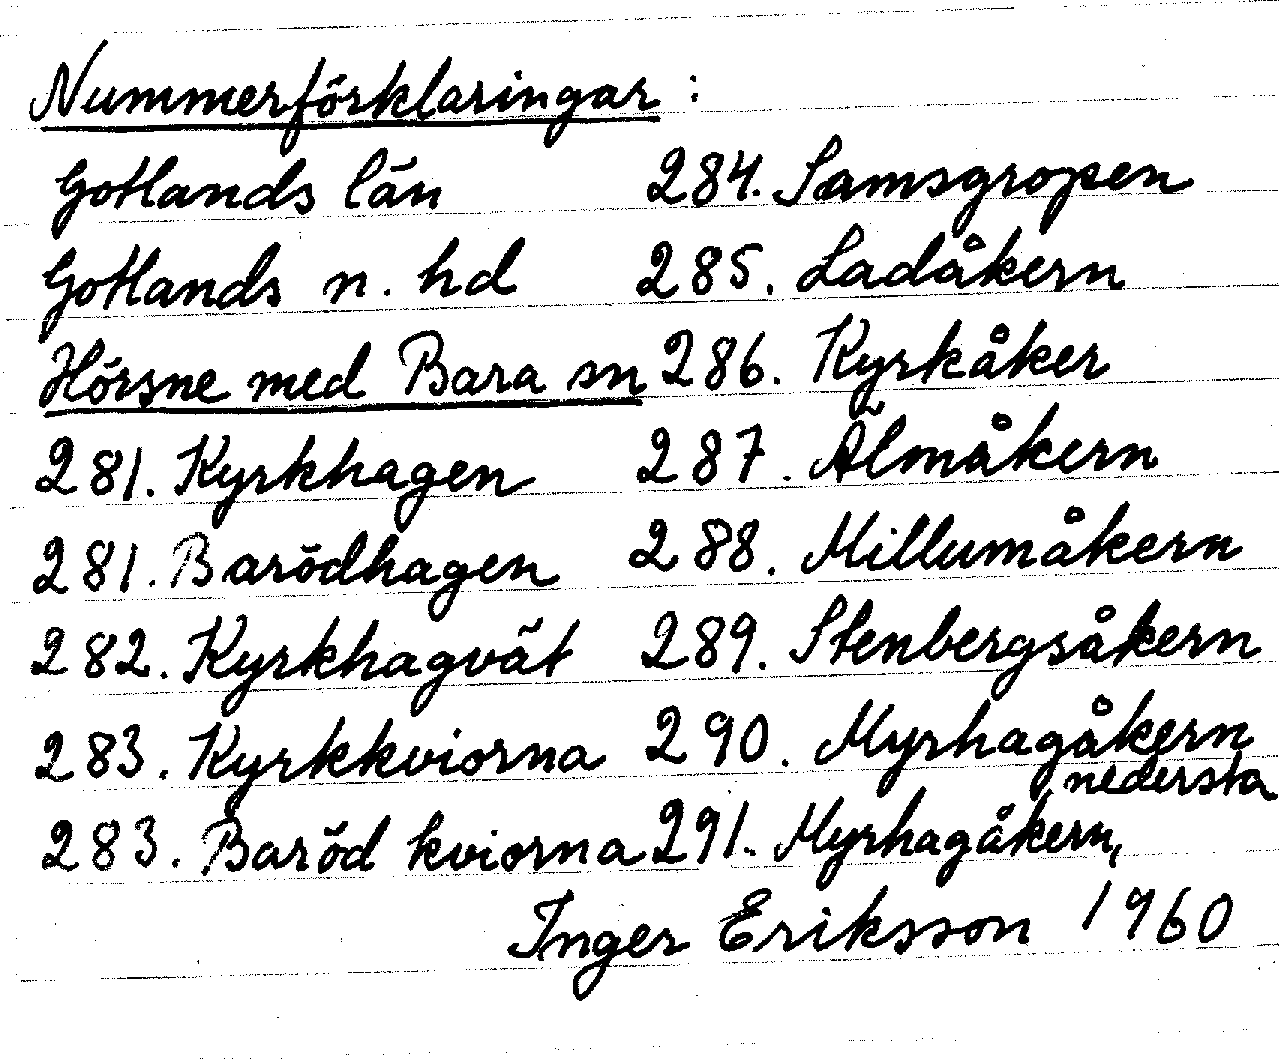 Nummerförklaringar:
Gotlands län
Gotlands n. hd
Hörsne med Bara sn
281. Kyrkhagen
281. Barödhagen
282. Kyrkhagvät
283. Kyrkkviorna
283. Baröd kviorna
284. Samsgropen
285. Ladåkern
286. Kyrkåker
287. Älmåkern
288. Millumåkern
289. Stenbergsåkern
290. Myrhagåkern
291. Myrhagåkern,
nedersta
Inger Eriksson 1960